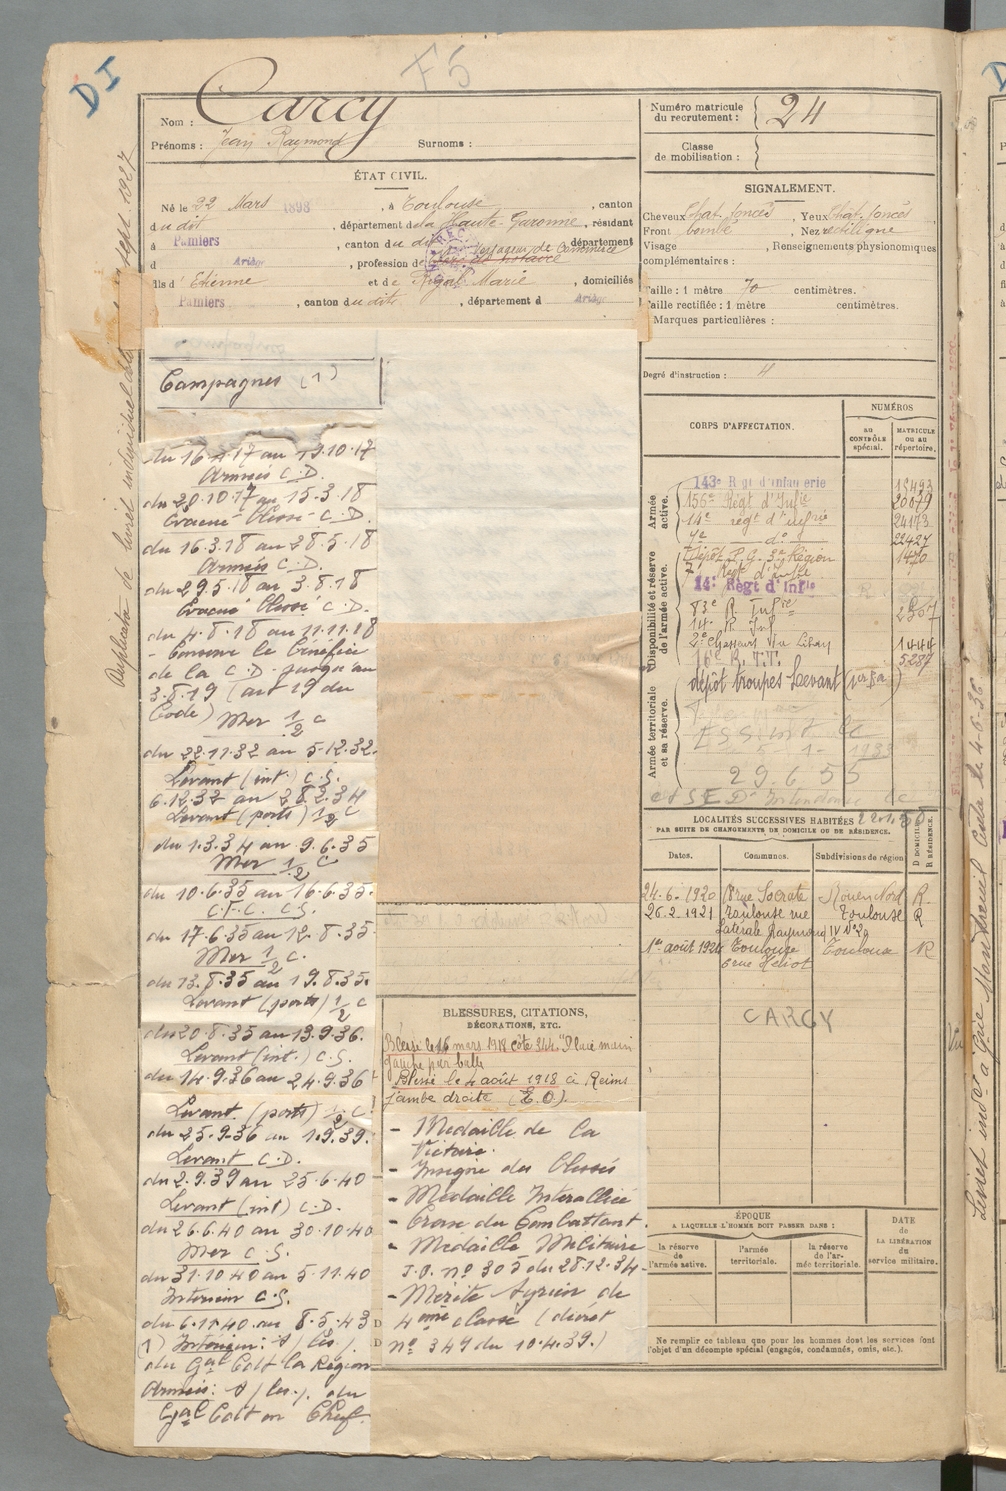 DI
F5
Nom : Carcy
Prénoms : Jean Raymond Surnoms :
ÉTAT CIVIL.
Né le 22 Mars 1898, à Toulouse, canton
dudit, département de la Haute-Garonne, résidant
à Pamiers, canton du dit, département
d Ariège, profession de Voyageur de Commerce
clerc de notaire
fils d' Etienne et de Rigal Marie, domiciliés
à Pamiers, canton dudit, département d Ariège
Numéro matricule du recrutement : 24
Classe de mobilisation :
SIGNALEMENT.
Cheveux Chat. foncés, Yeux Chat. foncés
Front bombé, Nez rectiligne
Visage , Renseignements physionomiques
complémentaires :
Taille : 1 mètre 70 centimètres.
Taille rectifiée : 1 mètre centimètres.
Marques particulières :
Degré d'instruction : 4
Duplicata de livret individuel sept. 1927
Campagnes (1)
du 16 17 au 19.10.17
Armées C.D.
du 20.10.17 au 15.3.18
Evacué Blessé C.D.
du 16.3.18 au 28.5.18
Armées C.D.
du 29.5.18 au 3.8.18
Evacué Blessé C.D.
du 4.8.18 au 11.11.18
- Conserve le bénéfice
de la C.D. jusqu'au
3.8.19 (art 19 du
Code) Mer 1/2 C
du 22.11.32 au 5.12.32.
Levant (int.) C.S.
6.12.32 au 28.2.34
Levant (ports) 1/2 C
du 1.3.34 au 9.6.35
Mer 1/2 C
du 10.6.35 au 16.6.35.
C.F.C. C.S.
du 17.6.35 au 12.8.35.
Mer 1/2 C.
du 13.8.35 au 19.8.35.
Levant (ports) 1/2 C
du 20.8.35 au 13.9.36.
Levant (int.) C.S.
du 14.9.36 au 24.9.36
Levant (ports) 1/2 C
du 25.9.36 au 1.9.39.
Levant C.D.
du 2.9.39 au 25.6.40
Levant (int) C.D.
du 26.6.40 au 30.10.40
Mer C.S.
du 31.10.40 au 5.11.40
Intérieur C.S.
du 6.11.40 au 8.5.43
(1) Intérieur :
du Gal Cdt la Région
Armées : du
Gal Cdt en Chef
CORPS D'AFFECTATION.
NUMÉROS
AU CONTRÔLE spécial.
MATRICULE ou au répertoire.
Armée active.
143e Régt d'infanterie 15493
156e Régt d'Infie 20079
14e régt d'infrie 24173
7e do 22427
Disponibilité et réserve de l'armée active.
Dépôt P.G. 3e Région 1470
7 Régt d'infie
14e Régt d'Infie
83e R Infie 2367
14e R Inf
2e Chasseurs du Liban 1444
16e R.T.T. 5287
Armée territoriale et sa réserve.
dépôt troupes Levant
29.6 55
LOCALITÉS SUCCESSIVES HABITÉES
PAR SUITE DE CHANGEMENTS DE DOMICILE OU DE RÉSIDENCE.
Dates. Communes. Subdivisions de région
D DOMICILE. R RÉSIDENCE.
24-6.1920 rue Socrate Rouen Nord R.
26.2.1921 Toulouse rue Toulouse R
Latérale Raymond IV
1er août 1924 Toulouse Toulouse R
rue Héliot
CARCY
BLESSURES, CITATIONS,
DÉCORATIONS, ETC.
Blessé le 16 mars 1918 côte 344. "Plaie main
gauche par balle
Blessé le 4 août 1918 à Reims
jambe droite (E.O.).
- Médaille de la
Victoire.
- Insigne des Blessés
- Médaille Interalliée
- Croix du Combattant.
- Médaille Militaire
J.O. nº 303 du 28.12.34
- Mérite Syrien de
4ème classe (décret
nº 349 du 10.4.39.)
ÉPOQUE
A LAQUELLE L'HOMME DOIT PASSER DANS :
la réserve de l'armée active.
l'armée territoriale.
la réserve de l'armée territoriale.
DATE de LA LIBÉRATION du service militaire.
Ne remplir ce tableau que pour les hommes dont les services font
l'objet d'un décompte spécial (engagés, condamnés, omis, etc.).